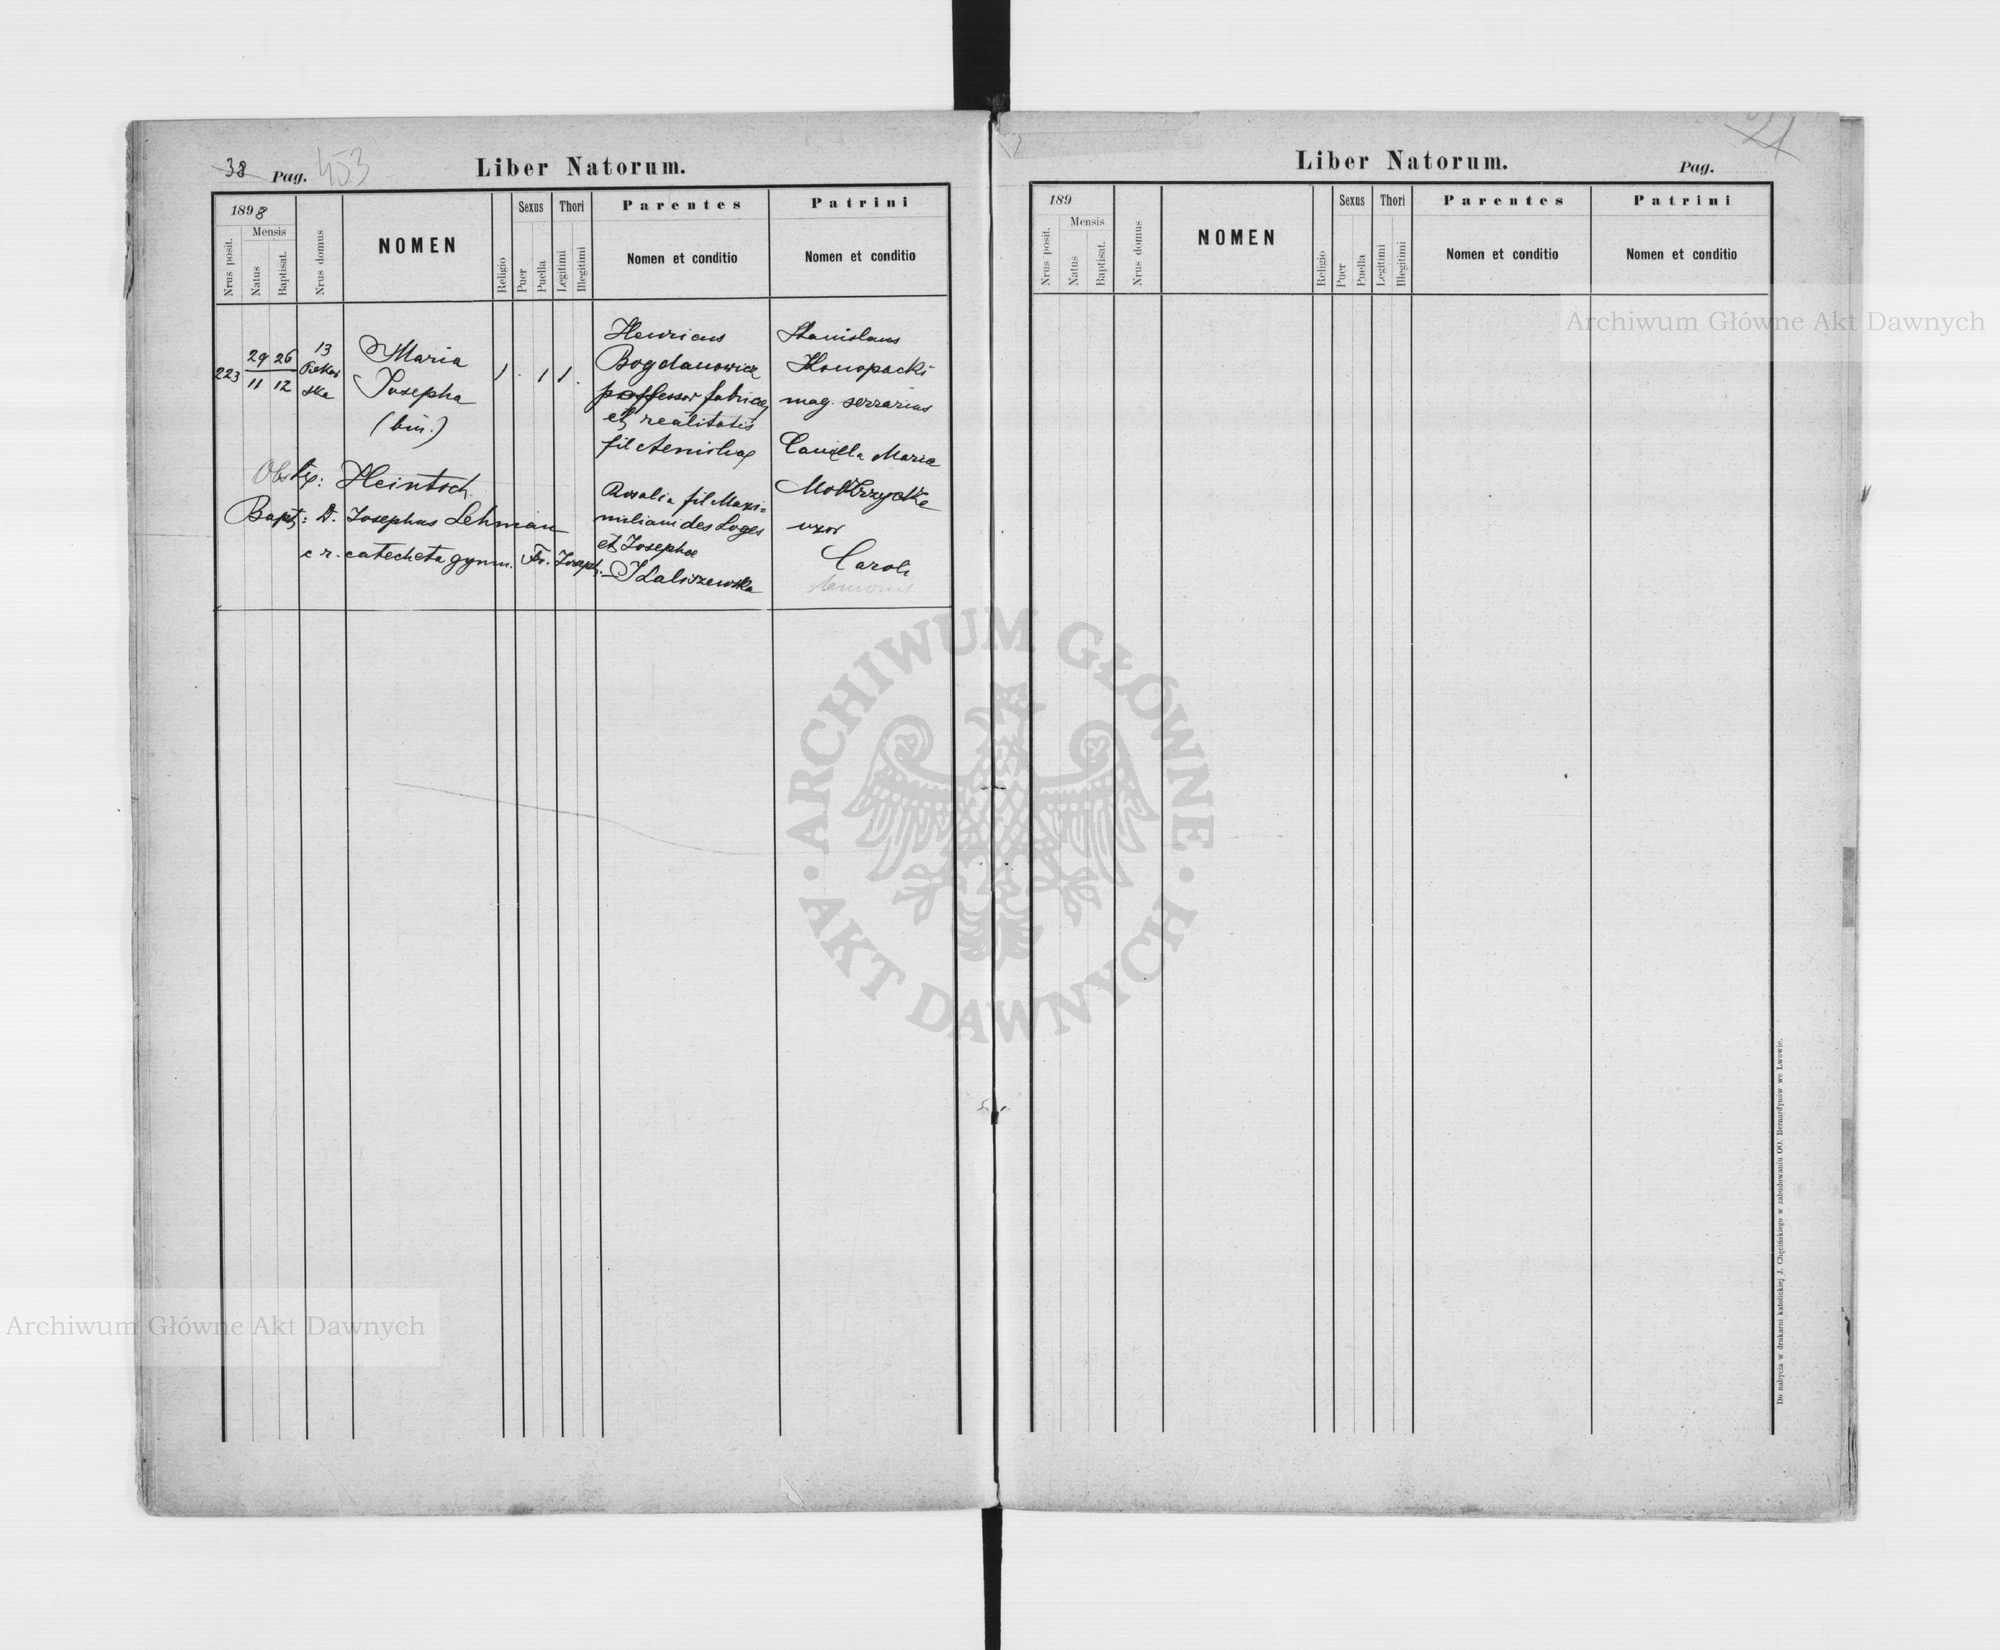 38 Pag. 453
Liber Natorum.
1898
Nrus posit.
Mensis
Natus
Baptisat.
Nrus domus
NOMEN
Religio
Sexus
Puer
Puella
Thori
Legitimi
Illegitimi
Parentes
Nomen et conditio
Patrini
Nomen et conditio
223
29 26
11 12
13
Piekar
ska
Maria
Josepha
(bin.)
1 . 1 1 .
Henricus
Bogdanowicz
possessor fabricae
et realitatis
fil
Rosalia fil Maxi=
miliani des Loges
et Josephae
Kaliszewska
Stanislaus
Konopacki
mag. serrarius
Camilla Maria
Mokrzycka
uxor
Caroli
Obstx: Heintsch
Bapt: D. Josephus Lehman
c r. catecheta gymn. Fr. Joseph.
21
Liber Natorum.
Pag.
189
Nrus posit.
Mensis
Natus
Baptisat.
Nrus domus
NOMEN
Religio
Sexus
Puer
Puella
Thori
Legitimi
Illegitimi
Parentes
Nomen et conditio
Patrini
Nomen et conditio
Do nabycia w drukarni katolickiej J. Chęcińskiego w zabudowaniu OO. Bernardynów we Lwowie.
Archiwum Główne Akt Dawnych
ARCHIWUM GŁÓWNE · AKT DAWNYCH ·
Archiwum Główne Akt Dawnych